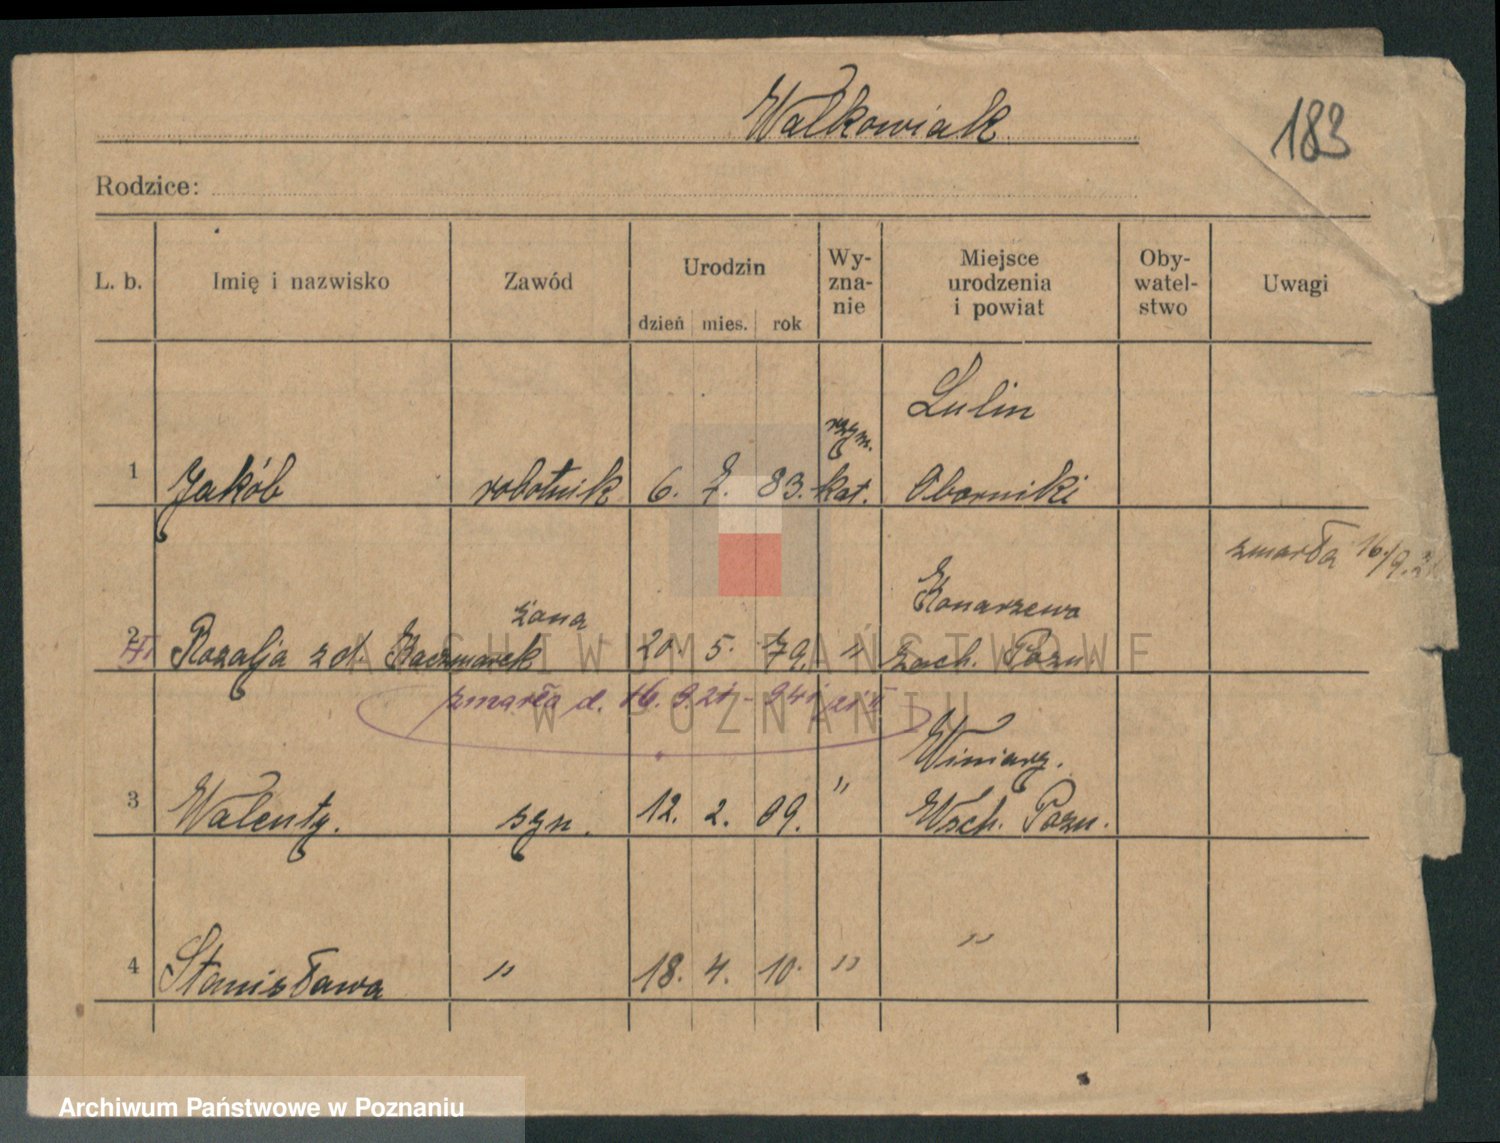 Wałkowiak
183
Rodzice:
L. b. Imię i nazwisko Zawód Urodzin dzień mies. rok Wy-zna-nie Miejsce urodzenia i powiat Oby-watel-stwo Uwagi
1 Jakób robotnik 6. 7. 83. rzym. kat. Lulin Oborniki
zmarła 16/9.
2 Rozalja z d. Kaczmarek żona 20. 5. 79. " Konarzewo zach. Pozn.
zmarła d. 16. 9. 21 -
3 Walenty. syn. 12. 2. 09. " Winiary. Wsch. Pozn.
4 Stanisława " 18. 4. 10. " "
ARCHIWUM PAŃSTWOWE
W POZNANIU
Archiwum Państwowe w Poznaniu